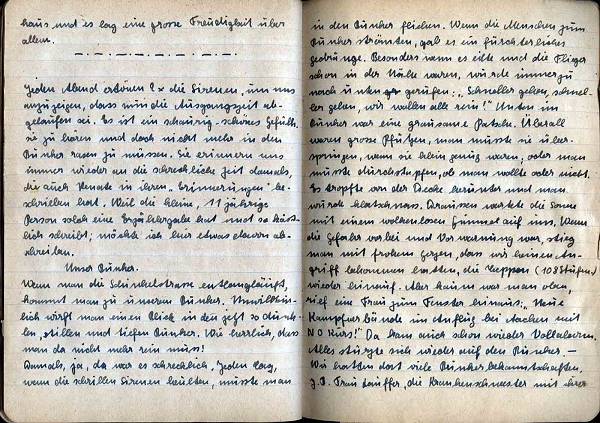 haus und es lag eine grosse Freudigkeit über
allem.
Jeden Abend ertönen 2x die Sirenen, um uns
anzuzeigen, dass nun die Ausgangszeit ab-
gelaufen sei. Es ist ein schaurig-schönes Gefühl
sie zu hören und doch nicht mehr in den
Bunker rasen zu müssen. Sie erinnern uns
immer wieder an die schreckliche Zeit damals,
die auch Renate in ihren "Erinnerungen" be-
schrieben hat. Weil die kleine, 11 jährige
Person solch eine Erzählergabe hat und so köst-
lich schreibt, möchte ich hier etwas davon ab-
schreiben.
Unser Bunker.
Wenn man die Schinkelstrasse entlangläuft,
kommt man zu unserem Bunker. Unwillkür-
lich wirft man einen Blick in den jetzt so dunk-
len, stillen und tiefen Bunker. Wie herrlich, dass
man da nicht mehr rein muss!
Damals, ja, da war es schrecklich. Jeden Tag,
wenn die schrillen Sirenen heulten, musste man
in den Bunker fliehen. Wenn die Menschen zum
Bunker strömten, gab es ein fürchterliches
Gedränge. Besonders wenn es eilte und die Flieger
schon in der Nähe waren, wurde immerzu
nach unten gerufen: "Schneller gehen, schnel-
ler gehen, wir wollen alle rein!" Unten im
Bunker war eine grausame Patsche. Überall
waren grosse Pfützen, man musste sie über-
springen, wenn sie klein genug waren, oder man
musste durchstapfen, ob man wollte oder nicht.
Es tropfte von der Decke herunter und man
wurde klatschnass. Draussen wartete die Sonne
mit einem wolkenlosen Himmel auf uns. Wenn
die Gefahr vorbei und Vorwarnung war, stieg
man mit frohem Herzen, dass wir keinen An-
griff bekommen hatten, die Treppen (108 Stufen)
wieder hinauf. Aber kaum war man oben,
rief eine Frau zum Fenster hinaus: "Neue
Kampfverbände im Anflug bei Aachen mit
NO Kurs!" Da kam auch schon wieder Vollalarm.
Alles stürzte sich wieder auf den Bunker. —
Wir hatten dort viele Bunkerbekanntschaften.
z.B. Frau Lauffer, die Krankenschwester mit ihrer